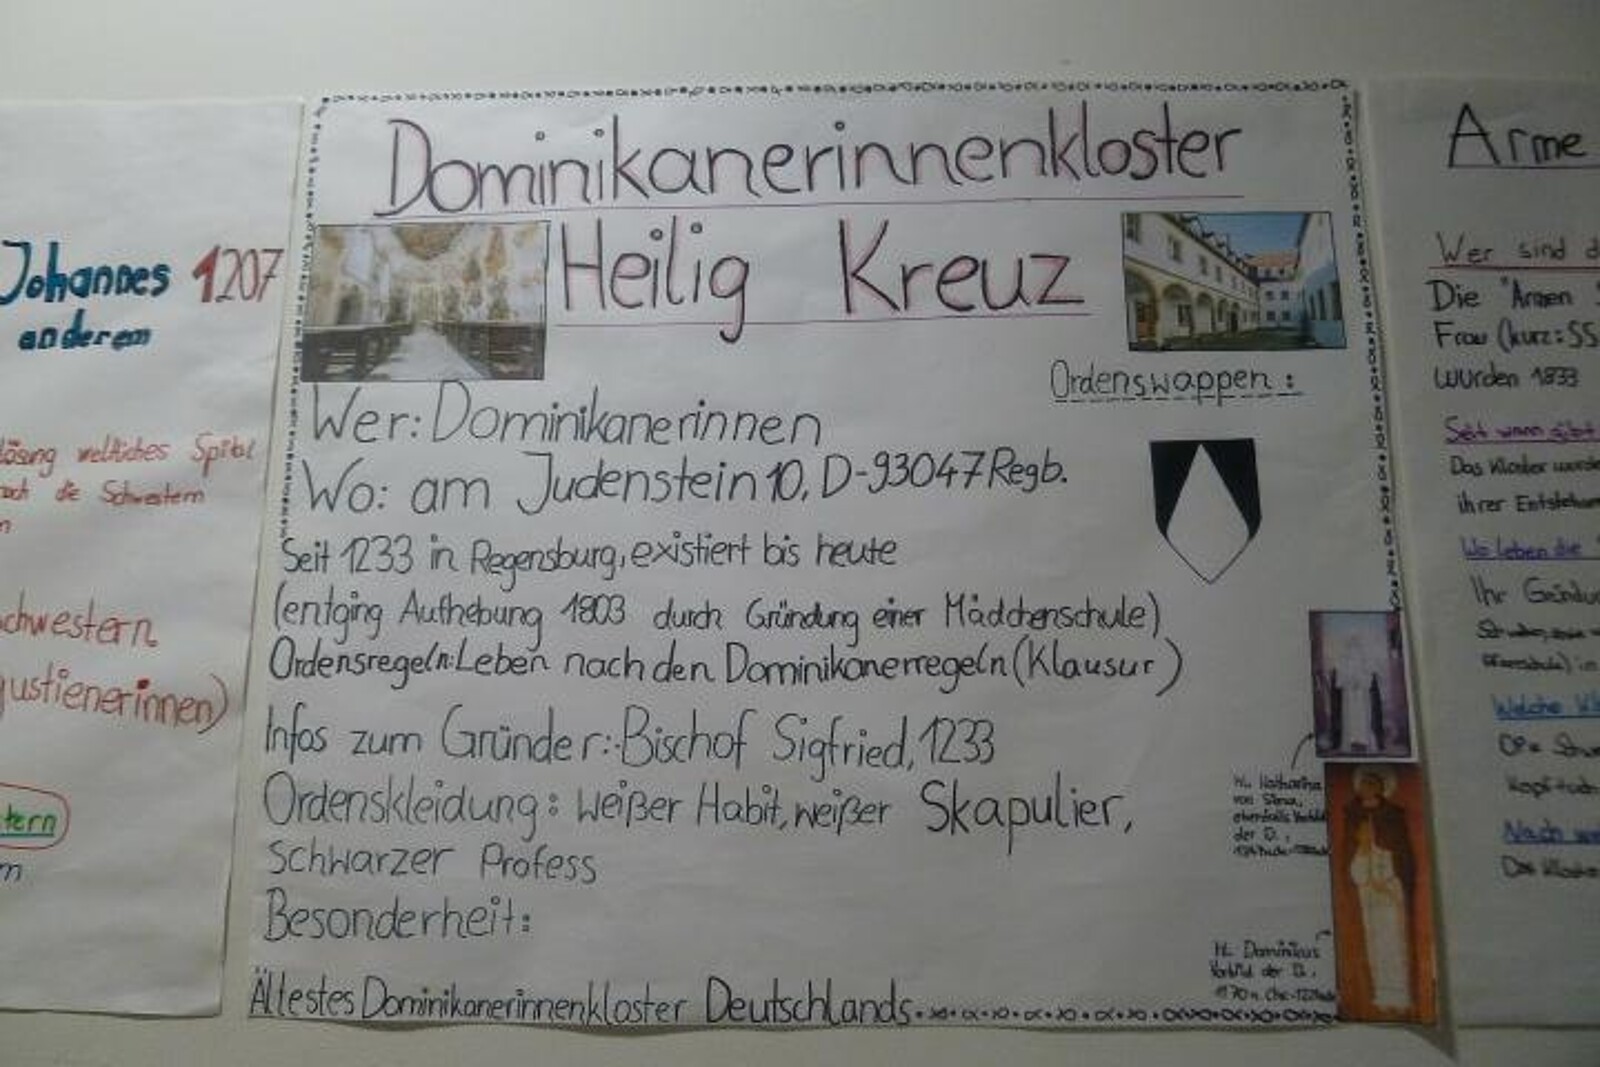 Johannes 1207
anderem
lösung weltliches Spital
nach die Schwestern
chwestern
gustienerinnen)
tern
Dominikanerinnenkloster
Heilig Kreuz
Ordenswappen:
Wer: Dominikanerinnen
Wo: am Judenstein 10, D-93047 Regb.
Seit 1233 in Regensburg, existiert bis heute
(entging Aufhebung 1803 durch Gründung einer Mädchenschule)
Ordensregeln: Leben nach den Dominikanerregeln (Klausur)
Infos zum Gründer: Bischof Sigfried, 1233
Ordenskleidung: weißer Habit, weißer Skapulier,
schwarzer Profess
Besonderheit:
Ältestes Dominikanerinnenkloster Deutschlands
Hl. Katharina
von Siena,
ebenfalls Vorbild
der D.,
Hl. Dominikus
Vorbild der D.,
Arme
Wer sind d
Die "Armen S
Frau (kurz: SS
wurden 1833
Seit wann gibt
Das Kloster wurde
ihrer Entstehun
Wo leben die
Ihr Gründu
Welche Kl
Kopftuch
Nach we
Das Kloste